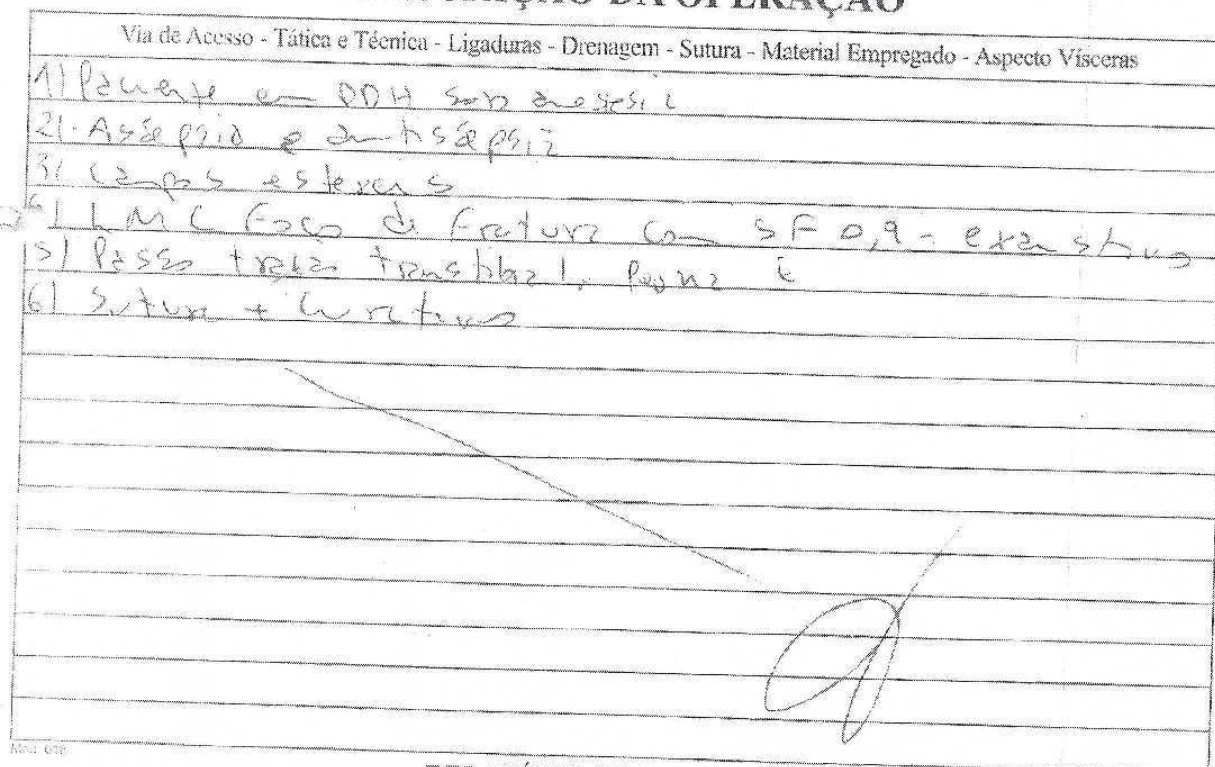 DA OPERAÇÃO
Via de Acesso - Tática e Técnica - Ligaduras - Drenagem - Sutura - Material Empregado - Aspecto Vísceras
1) Paciente em DDH sob anestesia
2) Assépsia e antissépsia
3) Campos estéreis
4) LMC Foco di Fratura com SF 0,9 - exaustivo
5) Passo transtibial, perna E
6) Sutura + Curativo